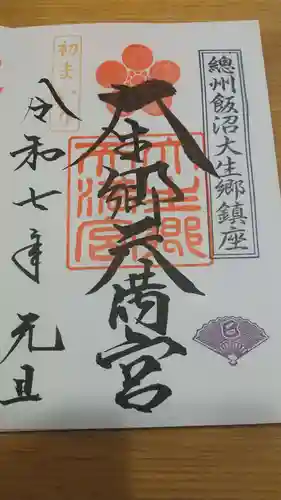 總州飯沼大生郷鎮座
大生郷天満宮
大生郷
天満宮
巳
初まいり
令和七年 元旦